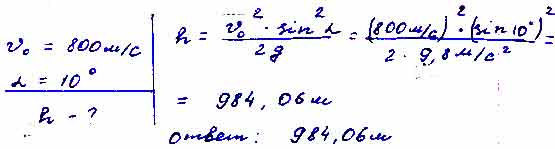 v₀ = 800 м/с
α = 10°
h - ?
h = v₀² · sin² α / 2g = (800 м/с)² · (sin 10°)² / 2 · 9,8 м/с² =
= 984,06 м
ответ: 984,06 м